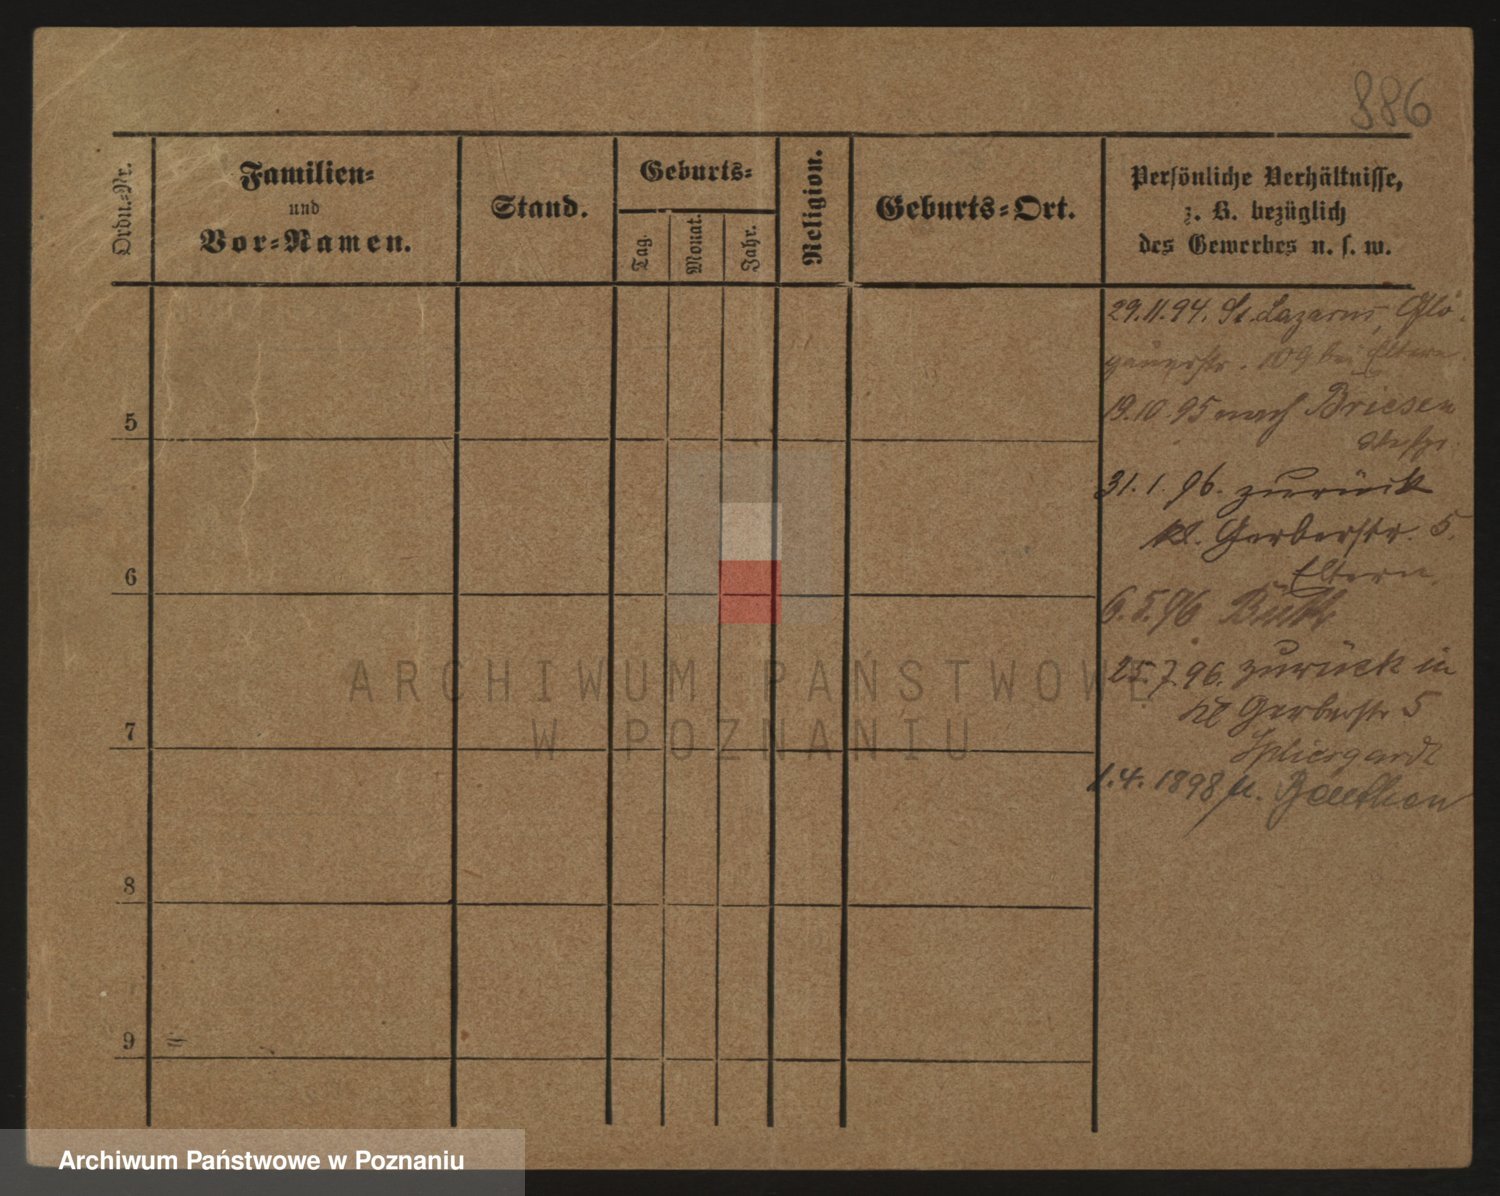 886
Ordn.-Nr.
Familien-
und
Vor-Namen.
Stand.
Geburts-
Tag.
Monat.
Jahr.
Religion.
Geburts-Ort.
Persönliche Verhältnisse,
z. B. bezüglich
des Gewerbes u. s. w.
29.11.94. St. Lazarus, Glo-
gauerstr. 109 bei Eltern.
19.10.95 nach Briesen
31.1.96. zurück
kl. Gerberstr. 5.
Eltern.
6.5.96
25.7.96. zurück in
kl Gerberstr 5
1.4.1898
5
6
7
8
9
ARCHIWUM PAŃSTWOWE
W POZNANIU
Archiwum Państwowe w Poznaniu